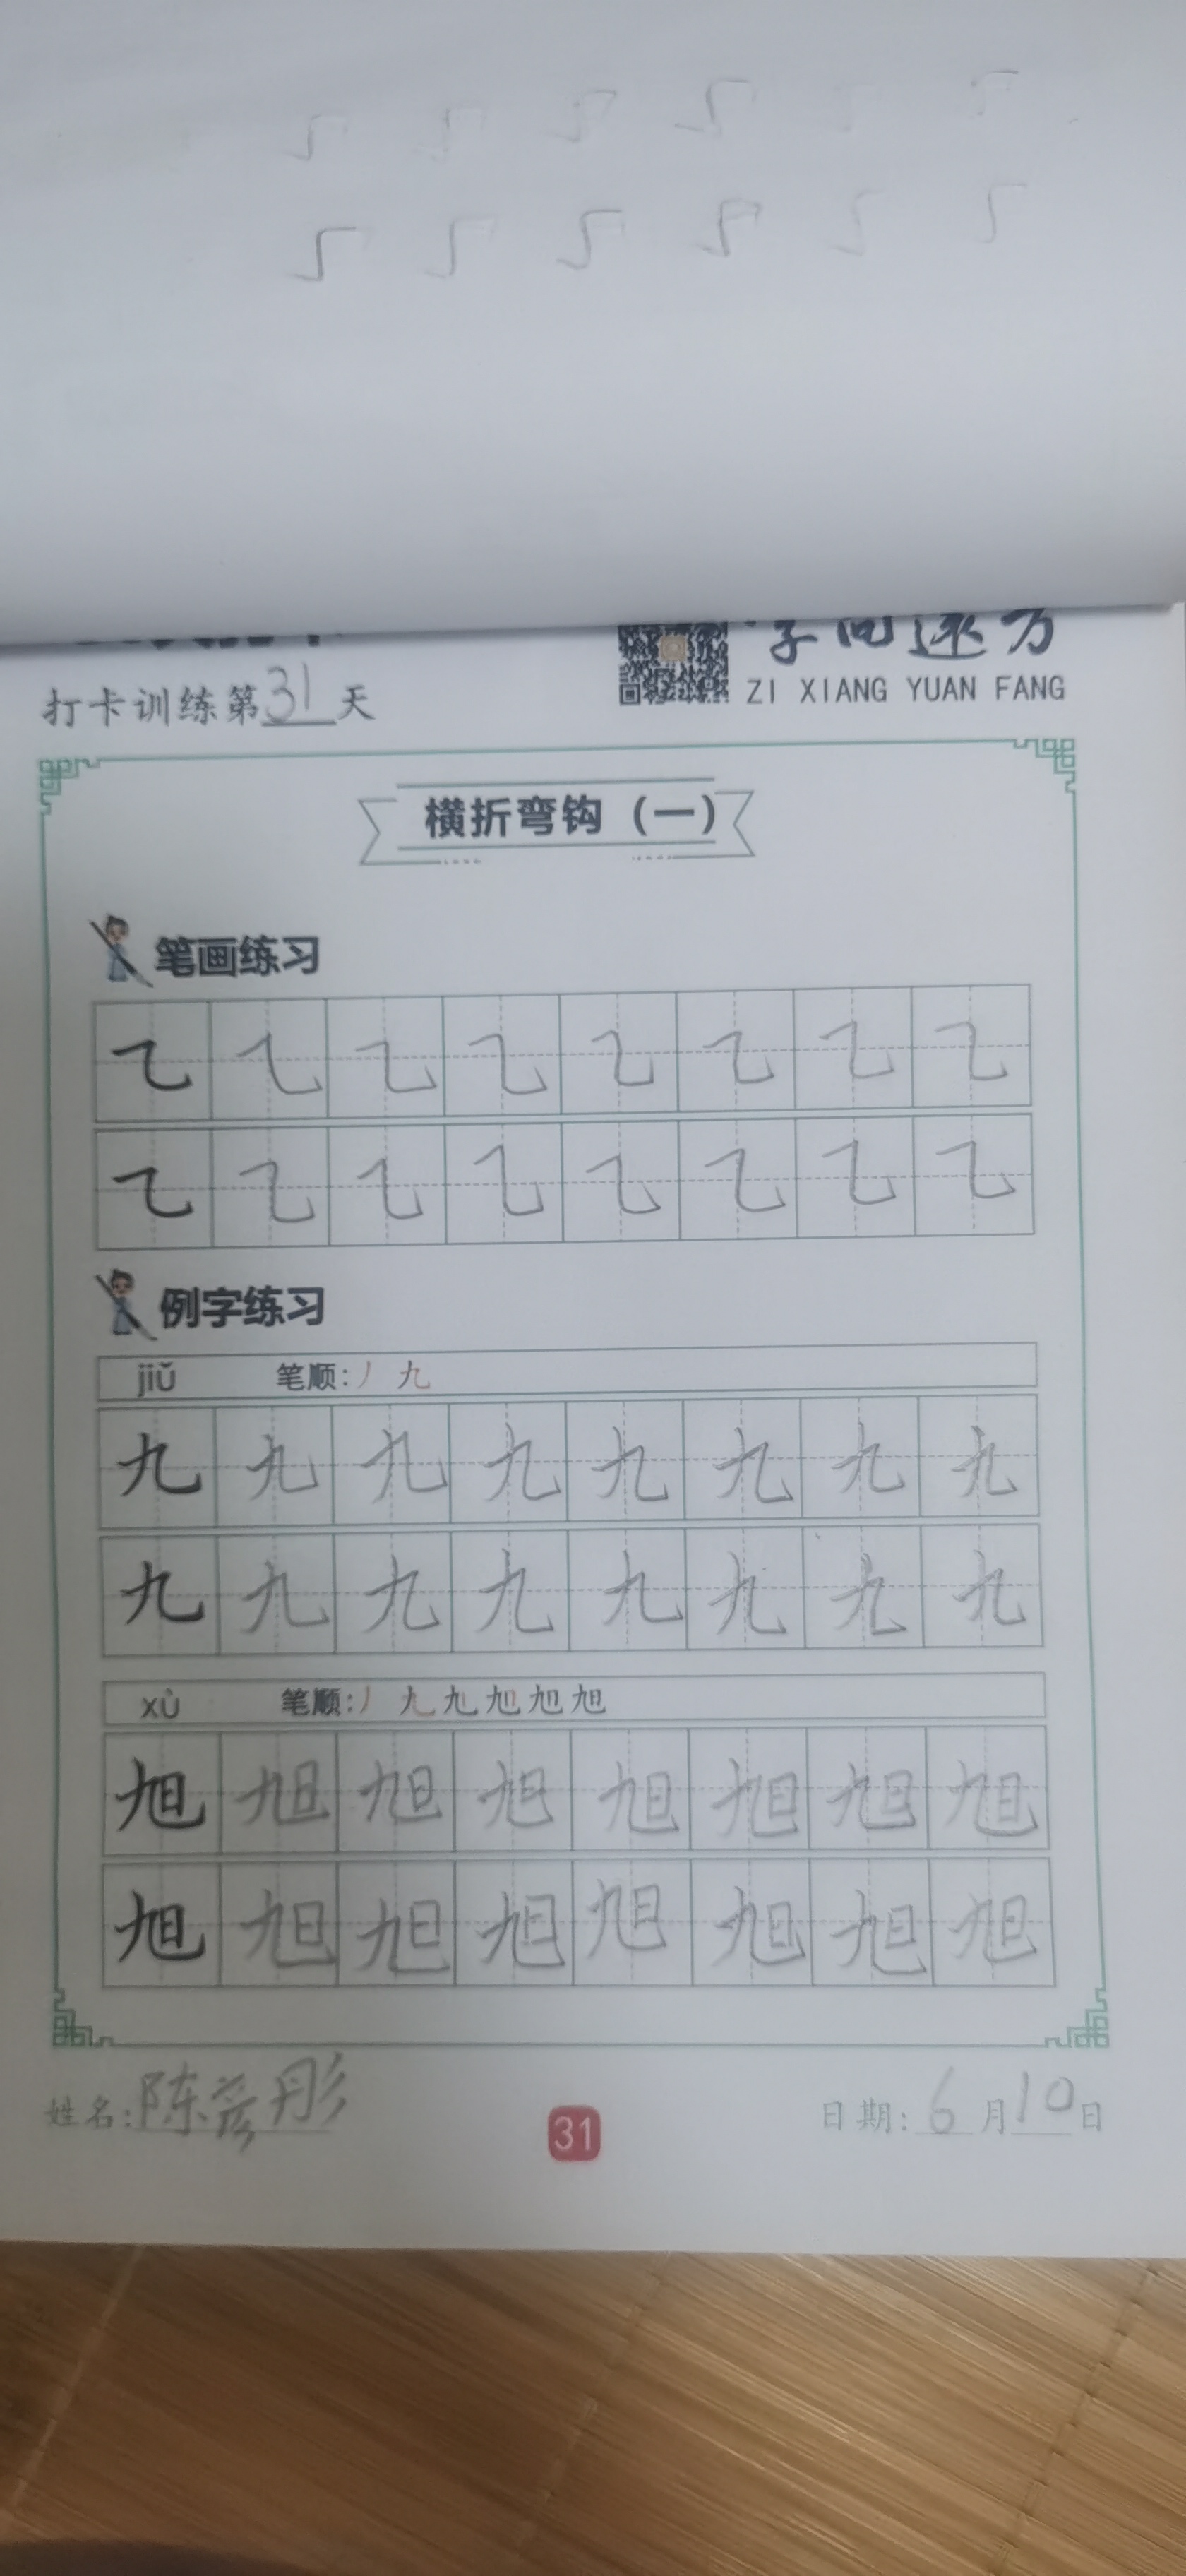 字向远方
打卡训练第31天
ZI XIANG YUAN FANG
横折弯钩（一）
笔画练习
㇈㇈㇈㇈㇈㇈㇈㇈
㇈㇈㇈㇈㇈㇈㇈㇈
例字练习
jiǔ 笔顺:丿 九
九九九九九九九九
九九九九九九九九
xù 笔顺:丿 九 九 旭 旭 旭
旭旭旭旭旭旭旭旭
旭旭旭旭旭旭旭旭
姓名:陈彦彤
31
日期:6月10日